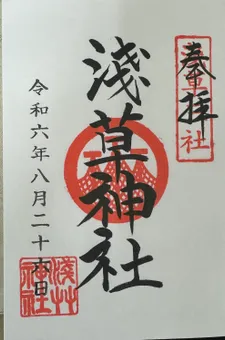 奉拝
浅草神社
令和六年八月二十六日
浅草
神社